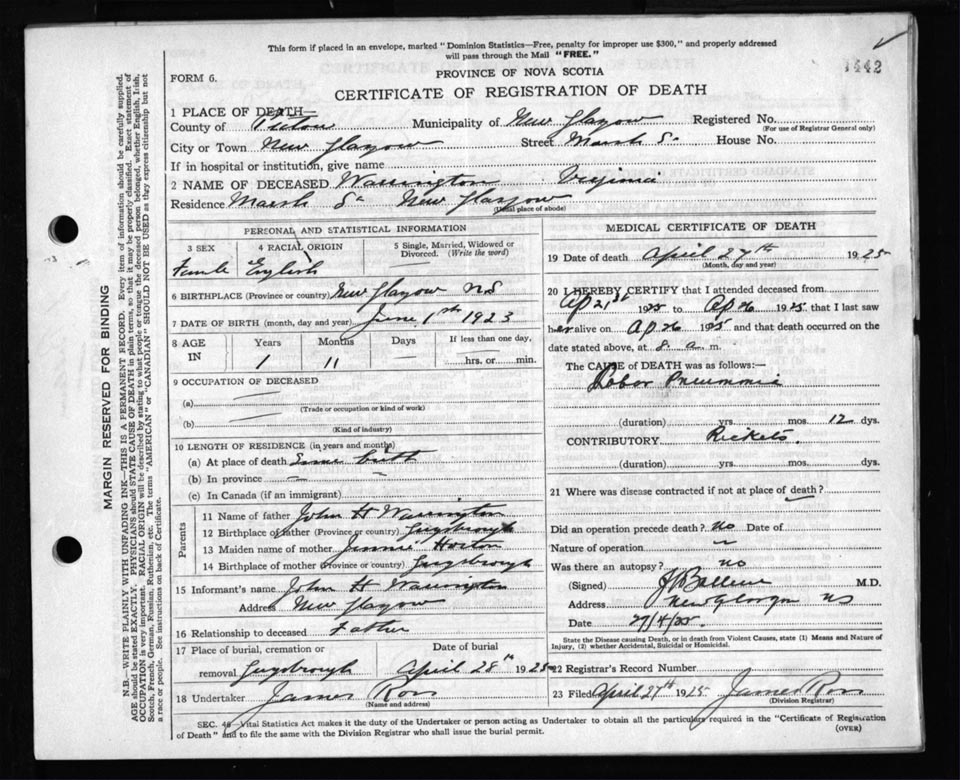 This form if placed in an envelope, marked "Dominion Statistics—Free, penalty for improper use $300," and properly addressed
will pass through the Mail "FREE."
1442
PROVINCE OF NOVA SCOTIA
FORM 6.
CERTIFICATE OF REGISTRATION OF DEATH
1 PLACE OF DEATH—
County of Pictou Municipality of New Glasgow Registered No.
(For use of Registrar General only)
City or Town New Glasgow Street Marsh St House No.
If in hospital or institution, give name
2 NAME OF DECEASED Warrington Virginia
Residence Marsh St New Glasgow
(Usual place of abode)
PERSONAL AND STATISTICAL INFORMATION
3 SEX 4 RACIAL ORIGIN 5 Single, Married, Widowed or Divorced. (Write the word)
Female English
6 BIRTHPLACE (Province or country) New Glasgow N S
7 DATE OF BIRTH (month, day and year) June 1st 1923
8 AGE IN Years Months Days If less than one day,
1 11 — hrs. or min.
9 OCCUPATION OF DECEASED
(a)
(Trade or occupation or kind of work)
(b)
(Kind of industry)
10 LENGTH OF RESIDENCE (in years and months)
(a) At place of death Since birth
(b) In province —
(c) In Canada (if an immigrant)
Parents
11 Name of father John H Warrington
12 Birthplace of father (Province or country) Guysborough
13 Maiden name of mother Jennie Horton
14 Birthplace of mother (Province or country) Guysborough
15 Informant's name John H Warrington
Address New Glasgow
16 Relationship to deceased Father
17 Place of burial, cremation or removal Date of burial
Guysborough April 28th 1925
18 Undertaker James Ross
(Name and address)
MEDICAL CERTIFICATE OF DEATH
19 Date of death April 27th 1925
(Month, day and year)
20 I HEREBY CERTIFY that I attended deceased from
Ap 21st 1925 to Ap 26 1925 that I last saw
her alive on Ap 26 1925 and that death occurred on
date stated above, at 8 a m.
The CAUSE of DEATH was as follows:—
Lobar Pneumonia
(duration) yrs. mos. 12 dys.
CONTRIBUTORY Rickets.
(duration) yrs. mos. dys.
21 Where was disease contracted if not at place of death?
Did an operation precede death? no Date of
Nature of operation
Was there an autopsy? no
(Signed) M.D.
Address New Glasgow NS
Date 27/4/25.
State the Disease causing Death, or in death from Violent Causes, state (1) Means and Nature of
Injury, (2) whether Accidental, Suicidal or Homicidal.
22 Registrar's Record Number
23 Filed April 27th 1925 James Ross
(Division Registrar)
SEC. 46—Vital Statistics Act makes it the duty of the Undertaker or person acting as Undertaker to obtain all the particulars required in the "Certificate of Registration
of Death" and to file the same with the Division Registrar who shall issue the burial permit.
(OVER)
MARGIN RESERVED FOR BINDING
N.B.—WRITE PLAINLY WITH UNFADING INK—THIS IS A PERMANENT RECORD. Every item of information should be carefully supplied.
AGE should be stated EXACTLY. PHYSICIANS should STATE CAUSE OF DEATH in plain terms, so that it may be properly classified. Exact statement of
OCCUPATION is very important. RACIAL ORIGIN will be described by stating to what people or tongue the deceased person belonged, whether English, Irish,
Scotch, French, German, Russian, Ruthenian, etc. The terms "AMERICAN" or "CANADIAN" SHOULD NOT BE USED as they express citizenship but not
a race or people. See instructions on back of Certificate.